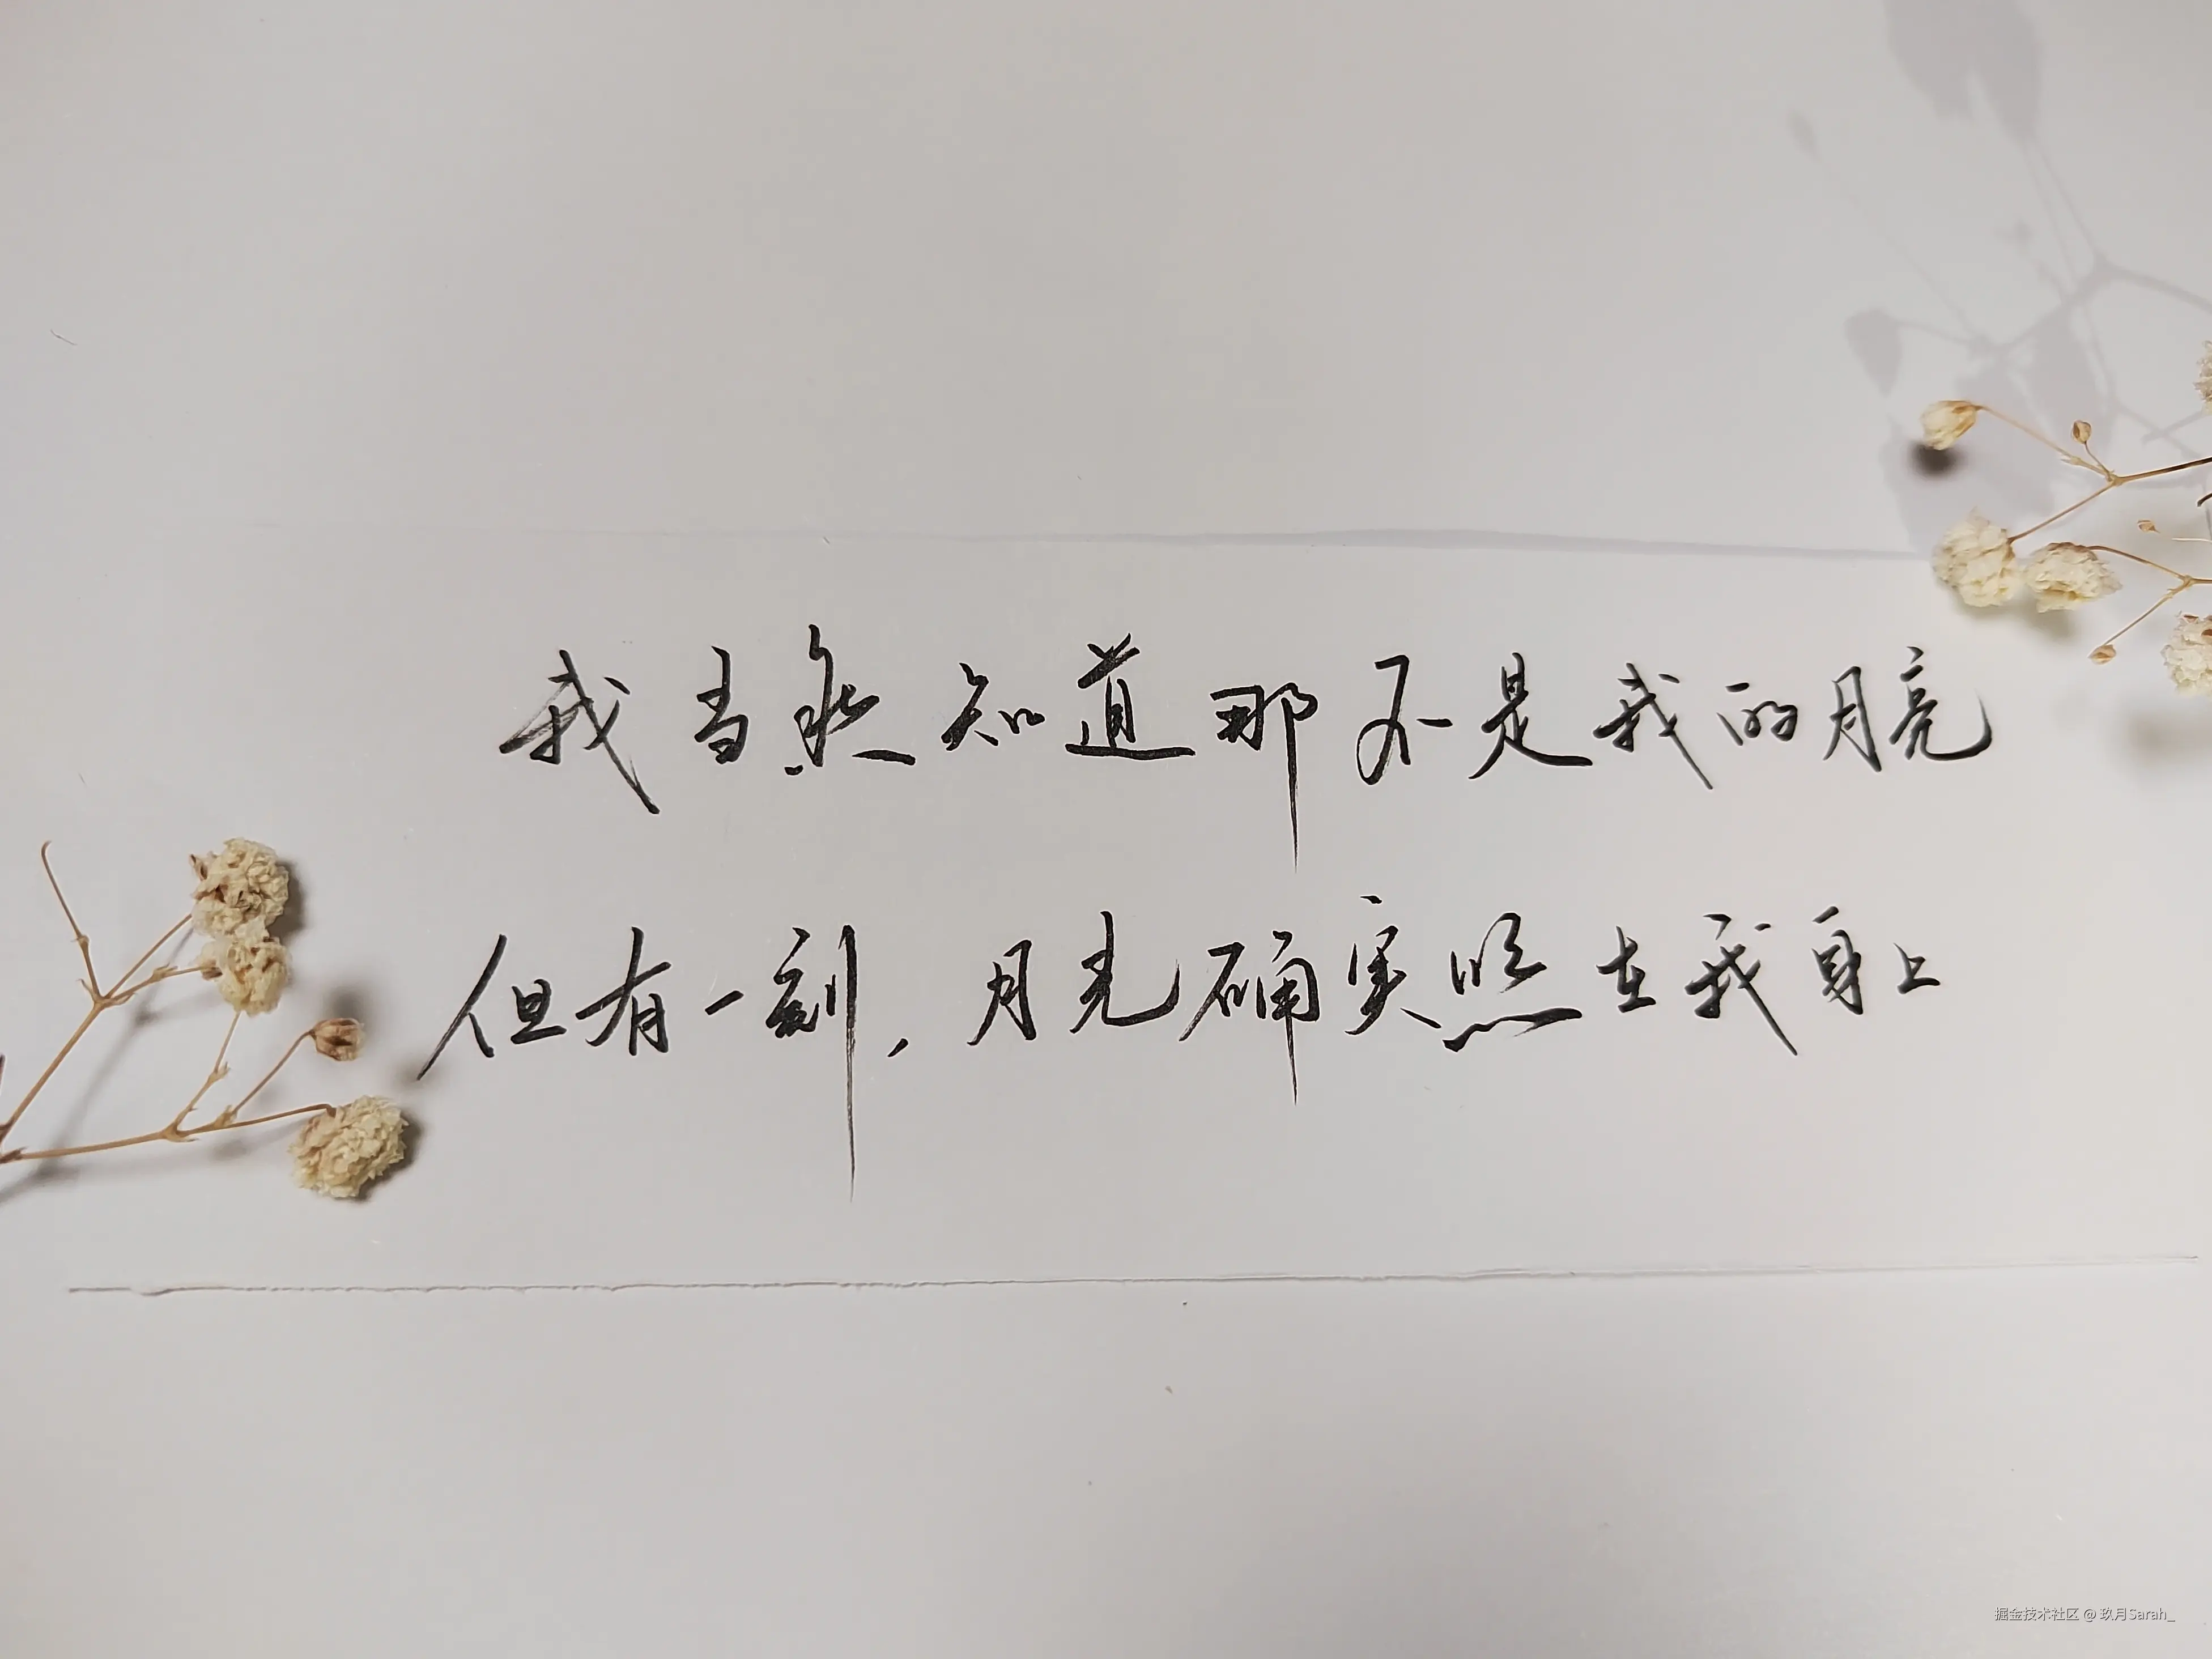 我当然知道那不是我的月亮
但有一刻，月光确实照在我身上
掘金技术社区 @ 玖月Sarah_